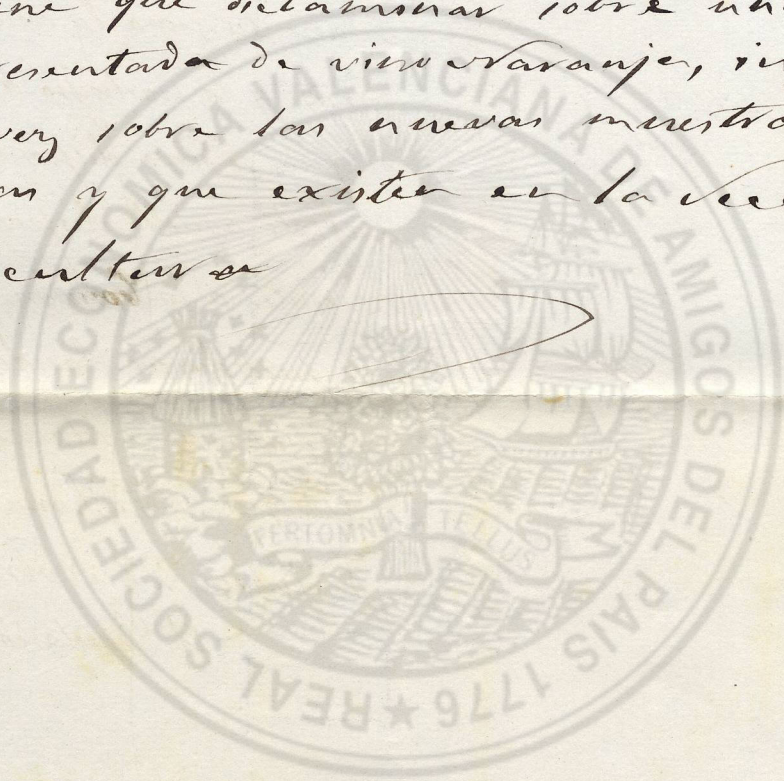 ne que dictaminar sobre un
resentada de vino Naranja, in
vez sobre las nuevas muestra
as y que existen en la Secc
cultura
REAL SOCIEDAD ECONOMICA VALENCIANA DE AMIGOS DEL PAIS 1776
FERT OMNIA TELLUS